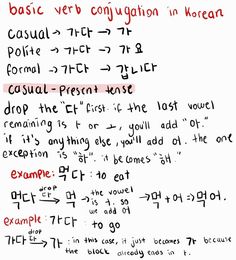 basic verb conjugation in Korean
Casual → 가다 → 가
Polite → 가다 → 가요
Formal → 가다 → 갑니다
Casual - Present tense
drop the "다" first. if the last vowel
remaining is ㅏ or ㅗ, you'll add "아."
if it's anything else, you'll add 어. the one
exception is "하". it becomes "해."
example: 먹다 : to eat
먹다 drop 다 → 먹 → the vowel is ㅓ. so we add 어 → 먹+어 → 먹어.
example : 가다 : to go
가다 drop 다 → 가 : in this case, it just becomes 가 because
the block already ends in ㅏ.